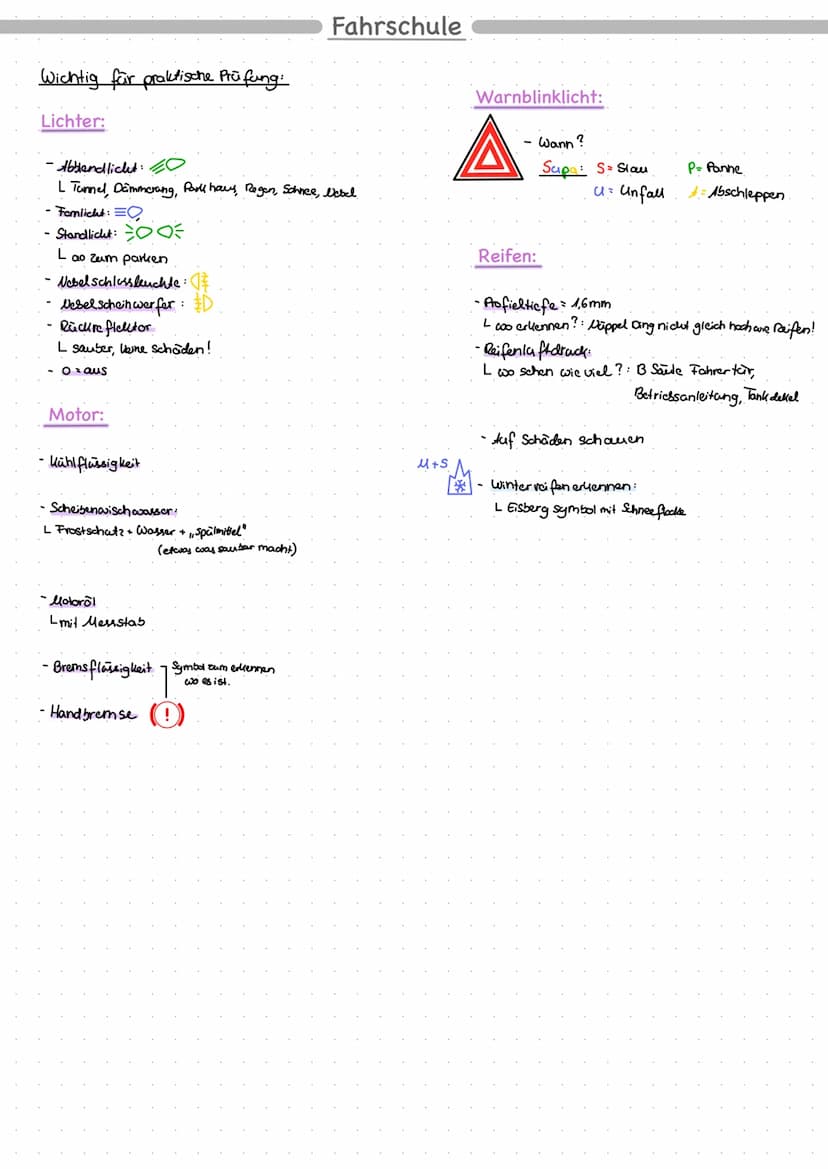 Fahrschule
Wichtig für praktische Prüfung:
Lichter:
- Abblendlicht:
L Tunnel, Dämmerung, Parkhaus, Regen, Schnee, Nebel
- Fernlicht:
- Standlicht:
L ao zum parken
- Nebelschlussleuchte:
- Nebelscheinwerfer:
- Rückreflektor
L sauber, keine Schäden!
- 0 = aus
Motor:
- Kühlflüssigkeit
- Scheibenwischwasser:
L Frostschutz + Wasser + „Spülmittel"
(etwas was sauber macht)
- Motoröl
L mit Messstab
- Bremsflüssigkeit
Symbol zum erkennen
wo es ist.
- Handbremse (!)
Warnblinklicht:
- Wann?
Supa: S = Stau P = Panne
U = Unfall A = Abschleppen
Reifen:
- Profieltiefe = 1,6mm
L wo erkennen?: Nüppel Ding nicht gleich hoch wie Reifen!
- Reifenluftdruck:
L wo sehen wie viel?: B Säule Fahrertür,
Betriebsanleitung, Tankdekel
- Auf Schäden schauen
M+S
- Winterreifen erkennen:
L Eisberg symbol mit Schneeflocke